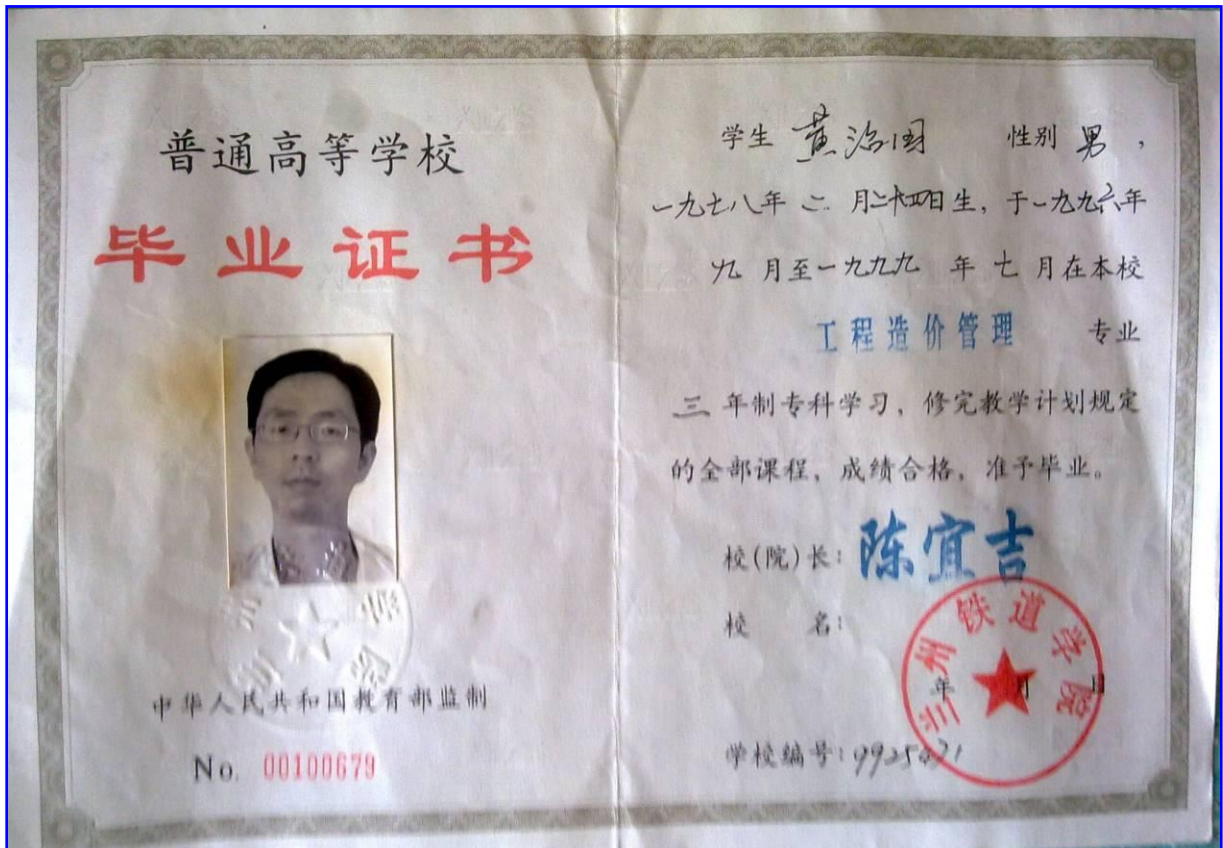 普通高等学校
毕业证书
中华人民共和国教育部监制
No. 00100679
学生 黄治国 性别 男，
一九七八年 二 月二十四日生，于一九九六年
九 月至一九九九 年 七 月在本校
工程造价管理 专业
三 年制专科学习，修完教学计划规定
的全部课程，成绩合格，准予毕业。
校(院)长：陈宜吉
校 名：
兰州铁道学院
年 月 日
学校编号：